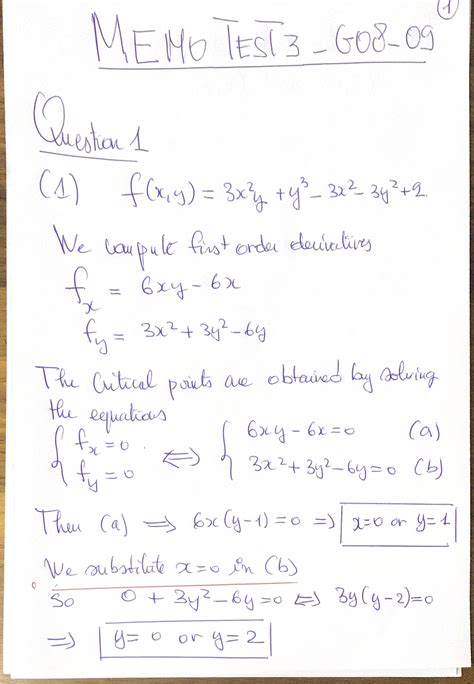 1
MEMO TEST 3 - G08-09
Question 1
(1) f(x,y) = 3x²y + y³ - 3x² - 3y² + 2
We compute first order derivatives
f_x = 6xy - 6x
f_y = 3x² + 3y² - 6y
The Critical points are obtained by solving
the equations
{ f_x = 0 ⇔ { 6xy - 6x = 0 (a)
f_y = 0 3x² + 3y² - 6y = 0 (b)
Then (a) ⇒ 6x(y-1) = 0 ⇒ x=0 or y=1
We substitute x=0 in (b)
So 0 + 3y² - 6y = 0 ⇔ 3y(y-2) = 0
⇒ y = 0 or y = 2